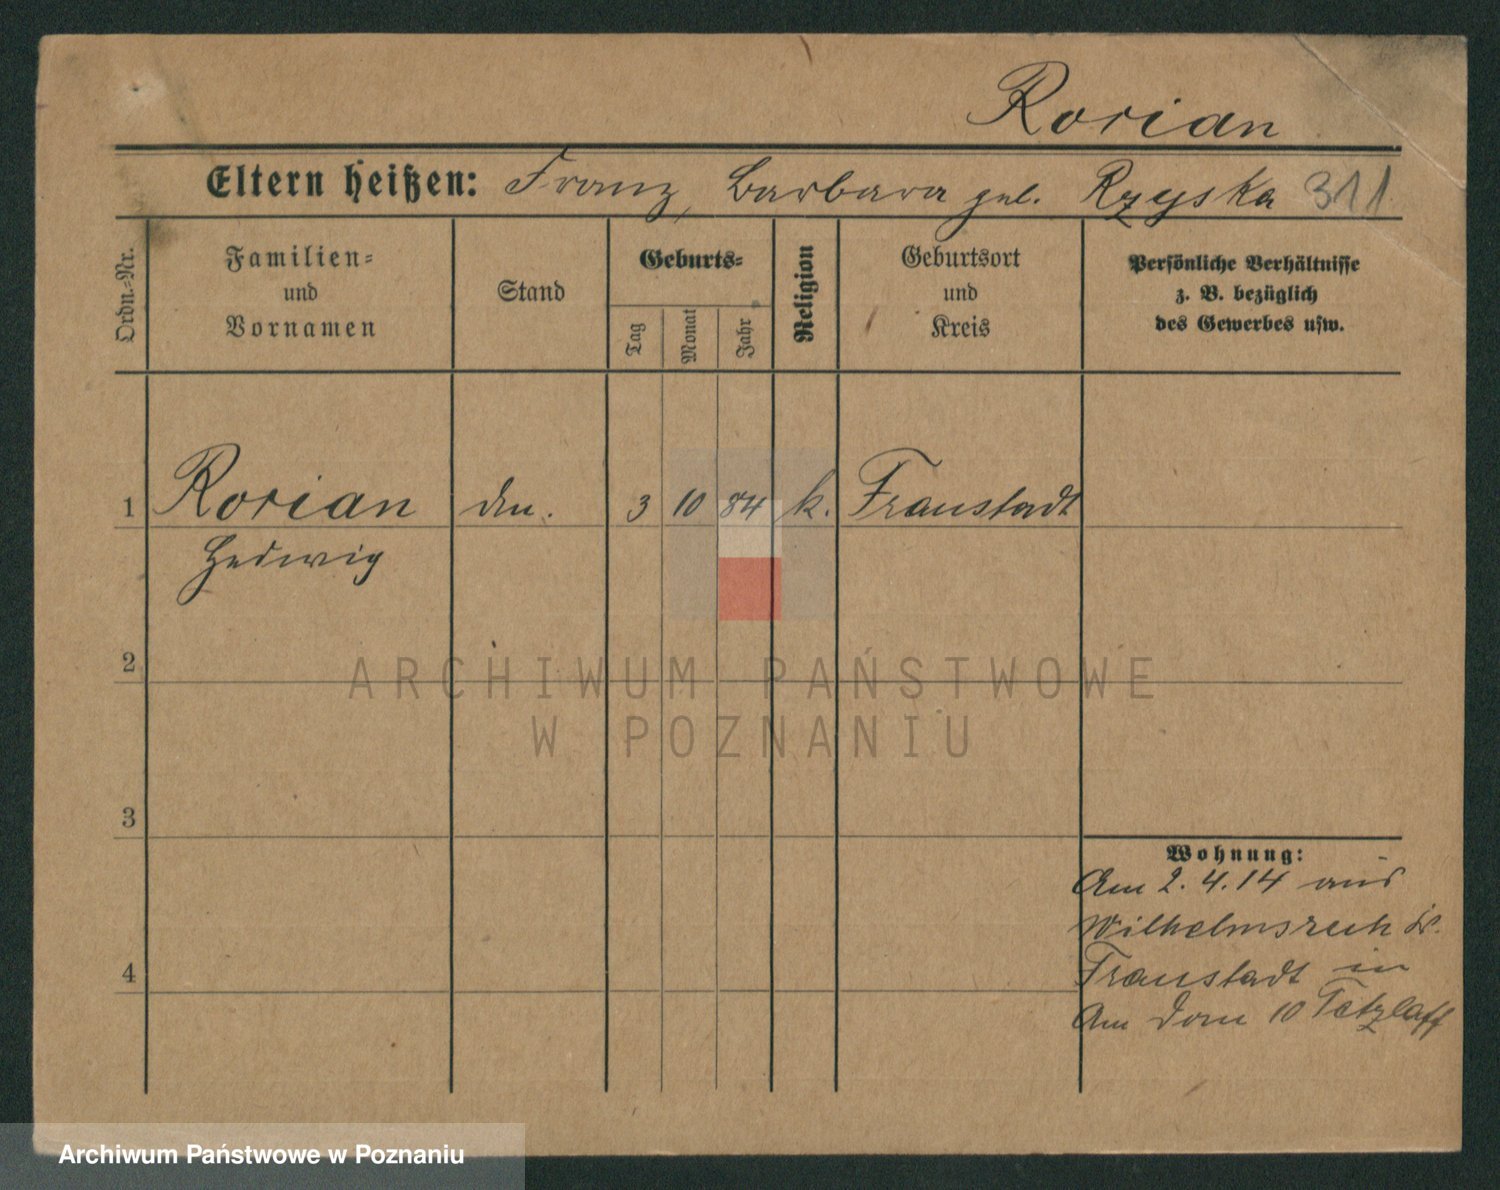 Rorian
Eltern heißen: Franz, Barbara geb. Rzyska 311
Ordn.-Nr.
Familien-
und
Vornamen
Stand
Geburts-
Tag
Monat
Jahr
Religion
Geburtsort
und
Kreis
Persönliche Verhältnisse
z. B. bezüglich
des Gewerbes usw.
1 Rorian 3 10 84 k. Fraustadt
Hedwig
2
3
4
Wohnung:
Am 2. 4. 14 aus
Wilhelmsruh Kr.
Fraustadt in
Am Dom 10 Tetzlaff
ARCHIWUM PAŃSTWOWE
W POZNANIU
Archiwum Państwowe w Poznaniu